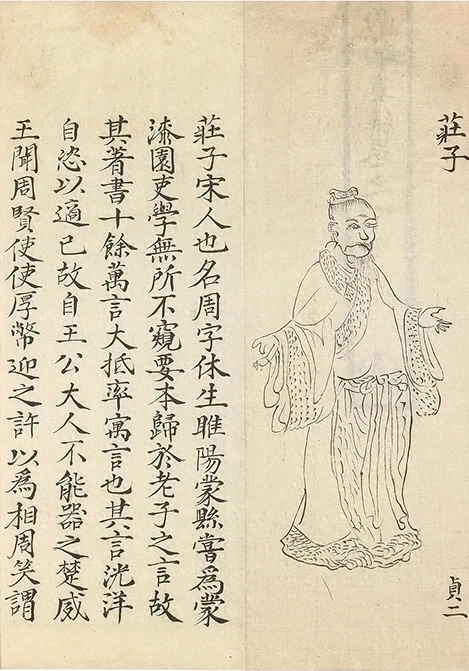 莊子
貞二
莊子宋人也名周字休生睢陽蒙縣嘗為蒙
漆園吏學無所不窺要本歸於老子之言故
其著書十餘萬言大抵率寓言也其言洸洋
自恣以適已故自王公大人不能器之楚威
王聞周賢使使厚幣迎之許以為相周笑謂